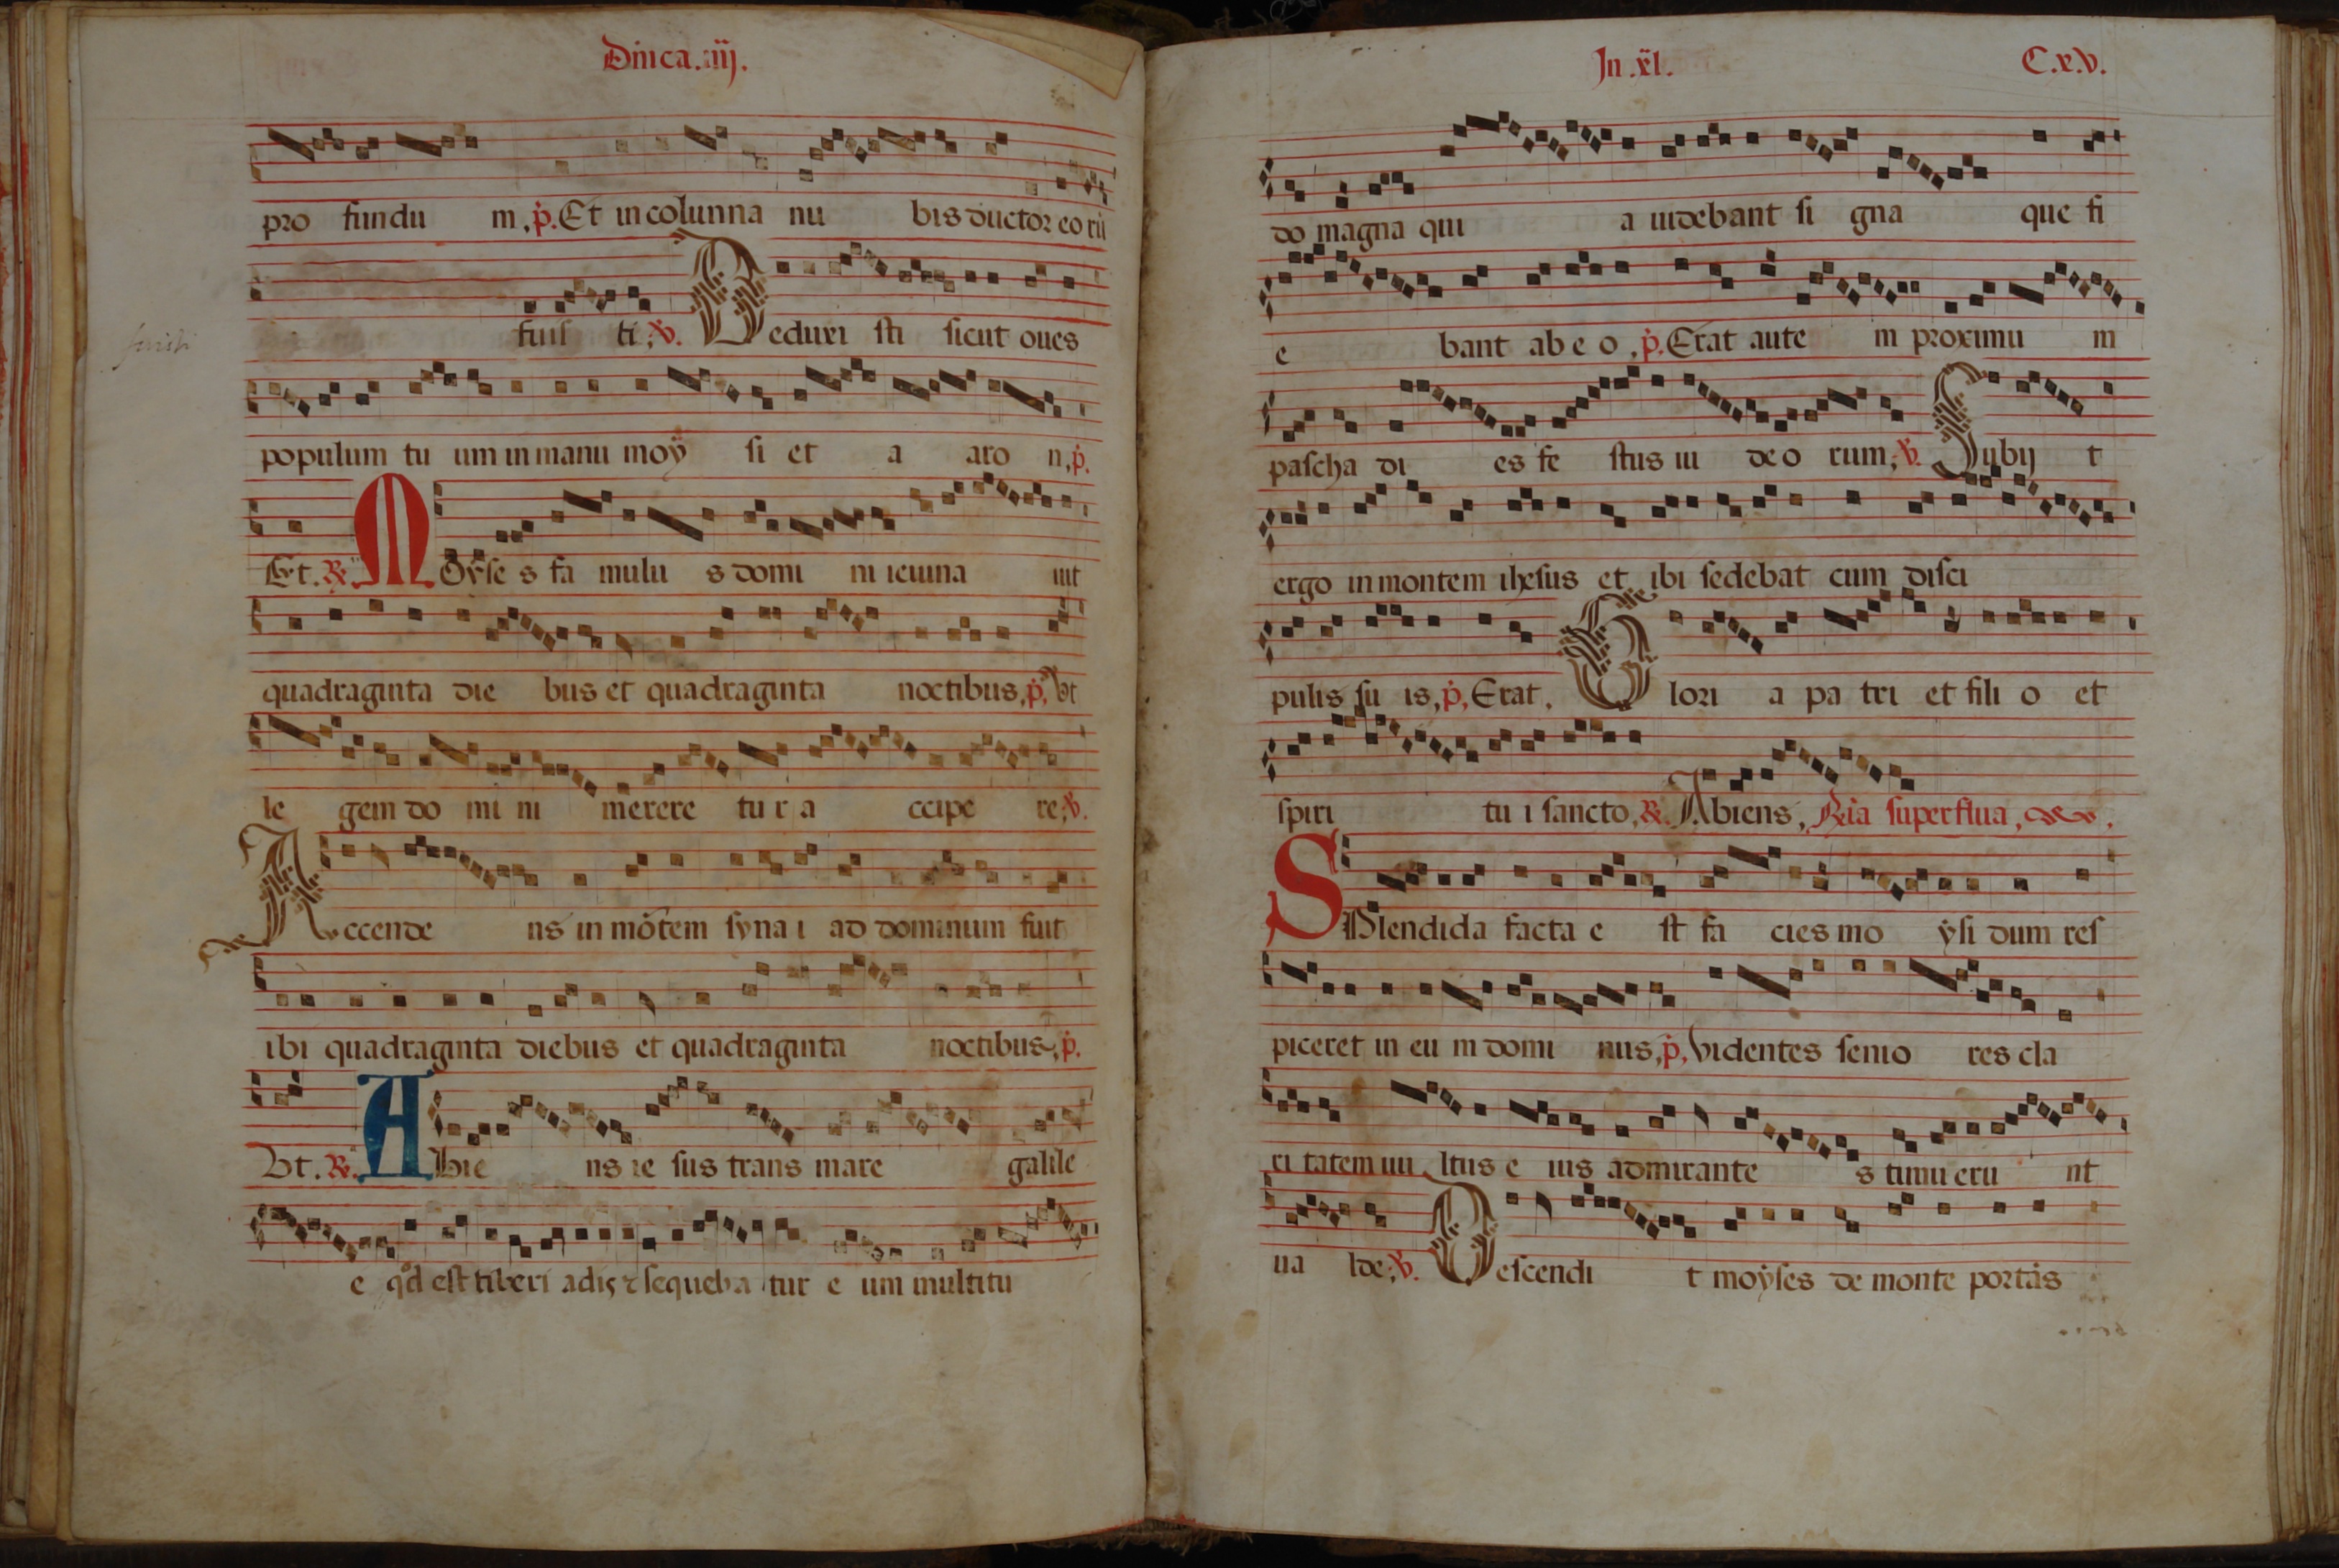 Dñica.iiij.
pro fundu m,p̄.Et in colunna nu bis ductor eo rū
fuis ti;℣. Deduxi sti sicut oues
fuisti
populum tu um in manu moÿ si et a aro n,p̄.
Et.℟. Moyse s fa mulu s domi ni ieiuna uit
quadraginta die bus et quadraginta noctibus,p̄,Vt
le gem do mi ni merere tu r a ccipe re;℣.
Accende ns in mōtem syna i ad dominum fuit
ibi quadraginta diebus et quadraginta noctibus,p̄.
Vt.℟. Abie ns ie sus trans mare galile
e qd̄ est tiberi adis ⁊ sequeba tur e um multitu
In.xl.
C.x.v.
do magna qui a uidebant si gna que fi
e bant ab e o,p̄.Erat aute m proximu m
pascha di es fe stus iu de o rum;℣. Subij t
ergo in montem ihesus et ibi sedebat cum disci
pulis su is,p̄,Erat. Glori a pa tri et fili o et
spiri tu i sancto,℟. Abiens, R̄ia superflua,
Splendida facta e st fa cies mo ÿsi dum res
piceret in eu m domi nus,p̄,Videntes senio res cla
ri tatem uu ltus e ius admirante s timu eru nt
ua lde;℣. Descendi t moyses de monte portās